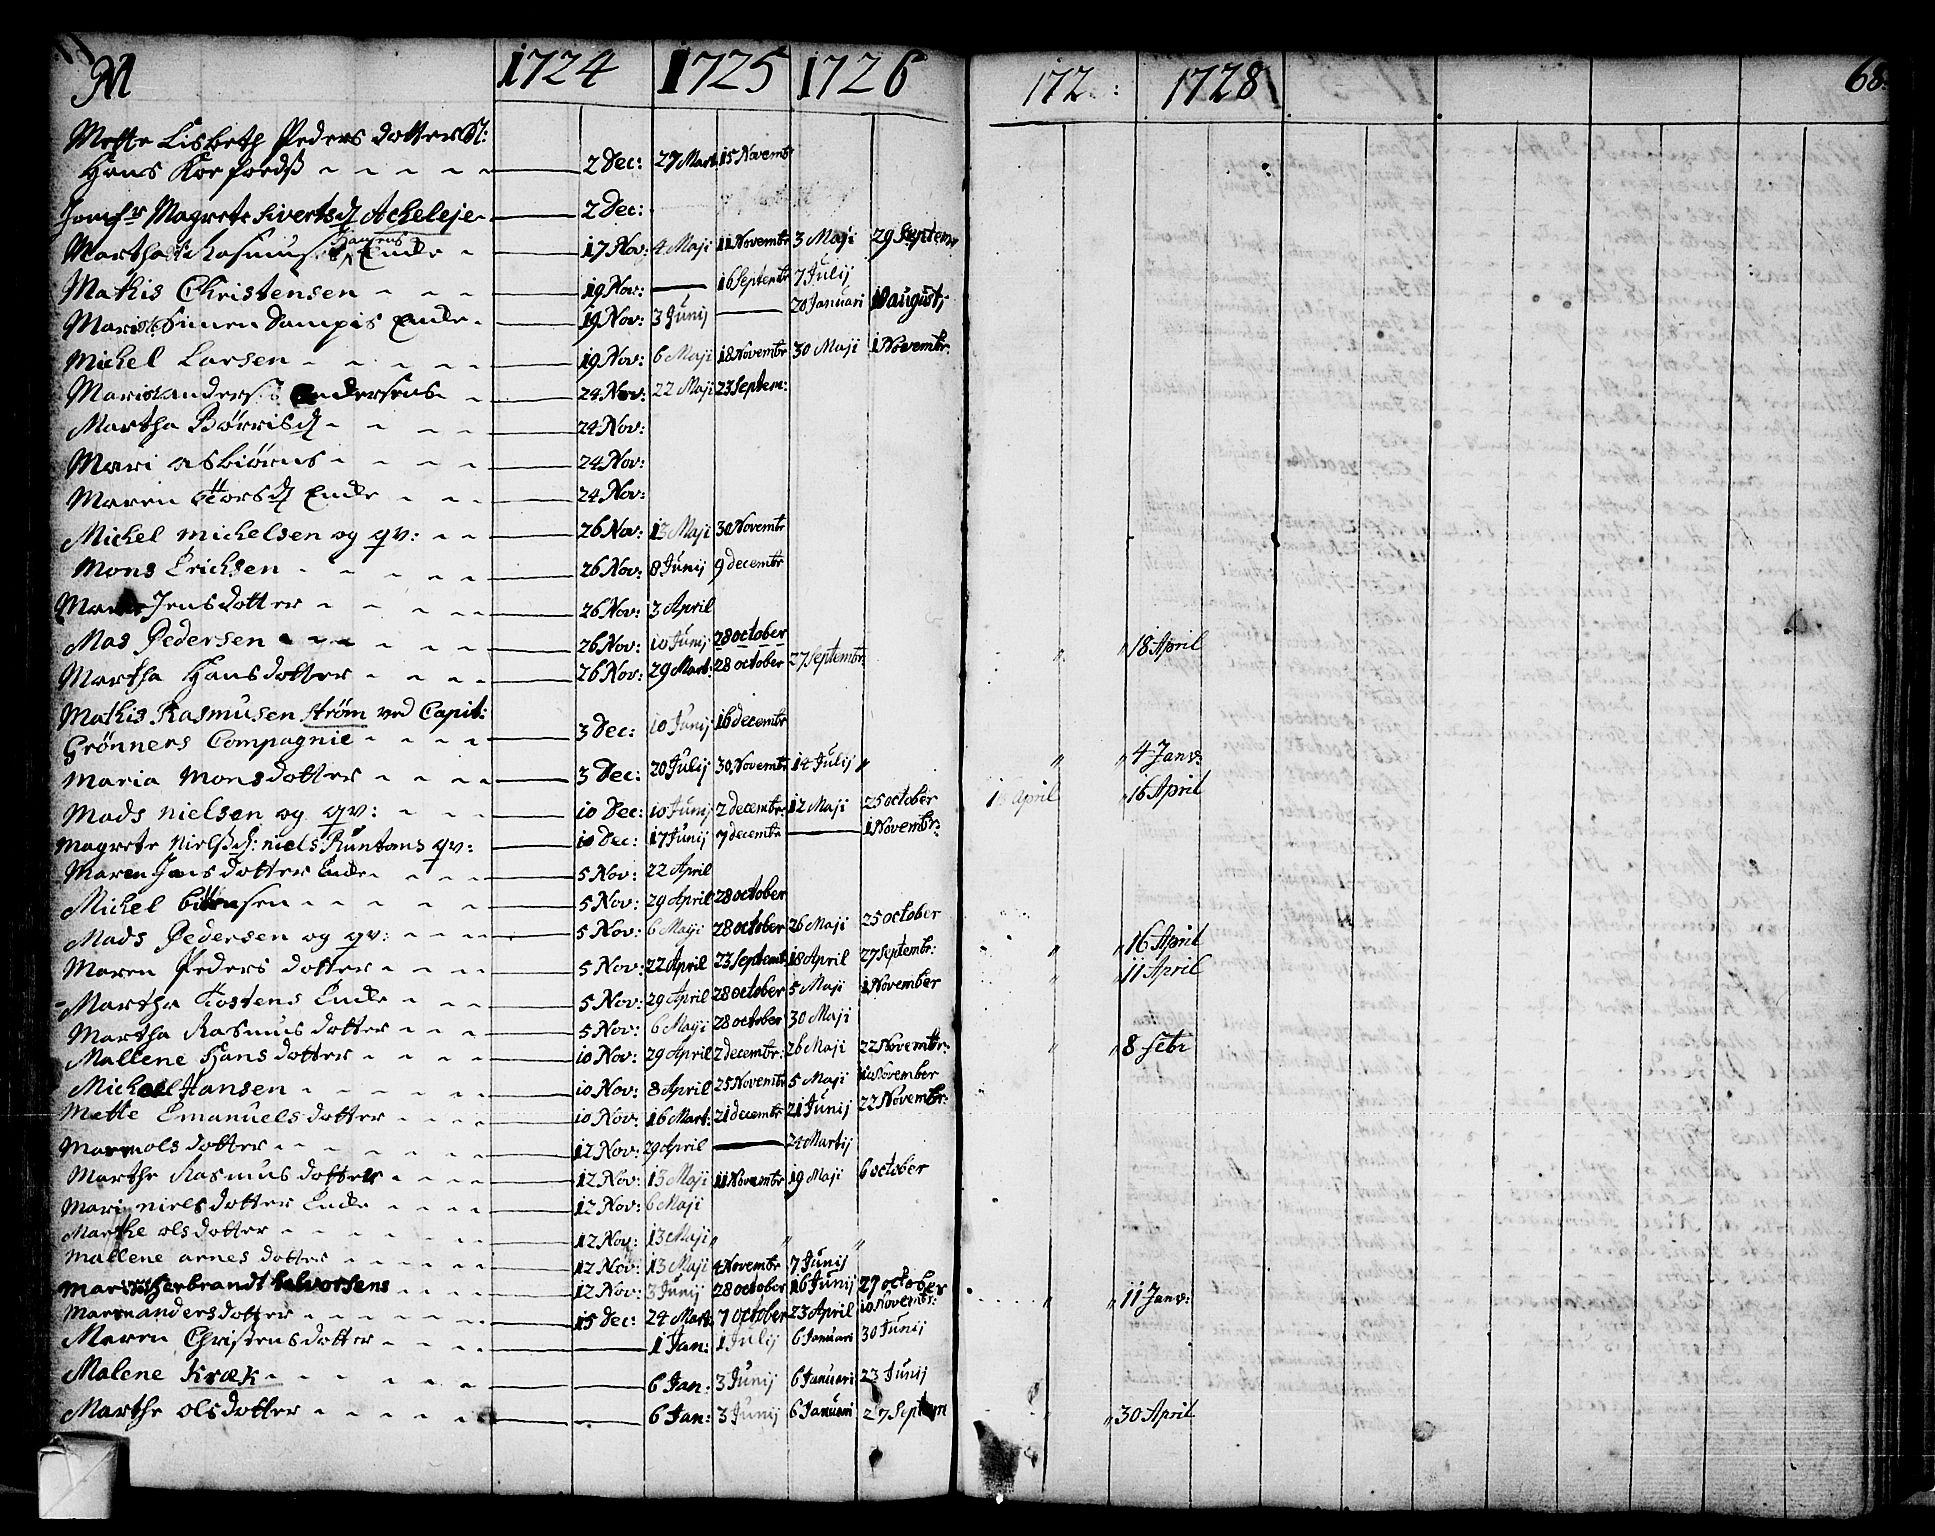 M 1724 1725 1726 172 1728 68
Mette Lisbeth Peders dotter
Hans 2 Dec: 29 Mart: 15 Novembr
Jomfr Magrete Sivertsd Acheleje 2 Dec:
Martha Rasmus Hansens Encke 17 Nov: 4 Maji 11 Novembr 3 Maji 29 Septem
Mathis Christensen 19 Nov: — 16 Septembr 7 Julij
Mari Simen Dampis Encke 19 Nov: 3 Junij — 20 Januari 18 august:
Michel Larsen 19 Nov: 6 Maji 18 Novembr 30 Maji 1 Novembr:
Maria Andersd Andersens 24 Nov: 22 Maji 23 Septem:
Martha Börrisd 24 Nov:
Mari asbiörns 24 Nov:
Maren Torsd Encke 24 Nov:
Michel michelsen og qv: 26 Nov: 13 Maji 30 Novembr
Mons Erichsen 26 Nov: 8 Junij 9 decembr
Jensdotter 26 Nov: 3 April
Mas Pedersen 26 Nov: 10 Junij 28 october 18 April
Martha Hansdotter 26 Nov: 29 Mart: 28 october 27 Septembr
Mathis Rasmusen Ström ved Capit:
Grönners Compagnie 3 Dec: 10 Junij 16 decembr
Maria Monsdotter 3 Dec: 20 Julij 30 Novembr 14 Julij 4 Janv:
Mads Nielsen og qv: 10 Dec: 10 Junij 2 decembr: 12 Maji 25 october April 16 April
Magrete Nielsd: niels Runtans qv: 10 Dec: 17 Junij 7 decembr — 1 Novembr:
Maren Jensdotter Encke 5 Nov: 22 April
Michel 5 Nov: 29 April 28 october
Mads Pedersen og qv: 5 Nov: 6 Maji 28 october 26 Maji 25 october 16 April
Maren Peders dotter 5 Nov: 22 April 23 Septemb 18 April 27 Septembr: 11 April
Martha Tostens Encke 5 Nov: 29 April 28 october 5 Maji 1 November
Martha Rasmus dotter 5 Nov: 6 Maji 28 october 30 Maji
Mallene Hansdotter 10 Nov: 29 April 2 decembr: 26 Maji 22 Novembr: 8 Febr
Michel Hansen 10 Nov: 8 April 25 Novembr 5 Maji November
Mette Emanuelsdotter 10 Nov: 16 Mart: 21 decembr 21 Junij 22 Novembr:
Maren olsdotter 12 Nov: 29 April — 24 Martij
Marthe Rasmusdotter 12 Nov: 13 Maji 11 Novembr 19 Maji 6 october
Mari nielsdotter Encke 12 Nov: 6 Maji
Marthe olsdotter 12 Nov: 13 Maji
Mallene arnesdotter 12 Nov: 13 Maji 4 Novembr 7 Junij
Herbrandt halvorsens 12 Nov: 3 Junij 28 october 16 Junij 27 october 11 Janv:
Maren andersdotter 15 Dec: 24 Mart: 7 october 23 April 10 Novembr:
Maren Christensdotter 1 Jan: 1 Julij 6 Januari 30 Junij
Malene Kræk 6 Jan: 3 Junij 6 Januari 23 Junij
Marthe olsdotter 6 Jan: 3 Junij 6 Januari 27 Septem 30 April